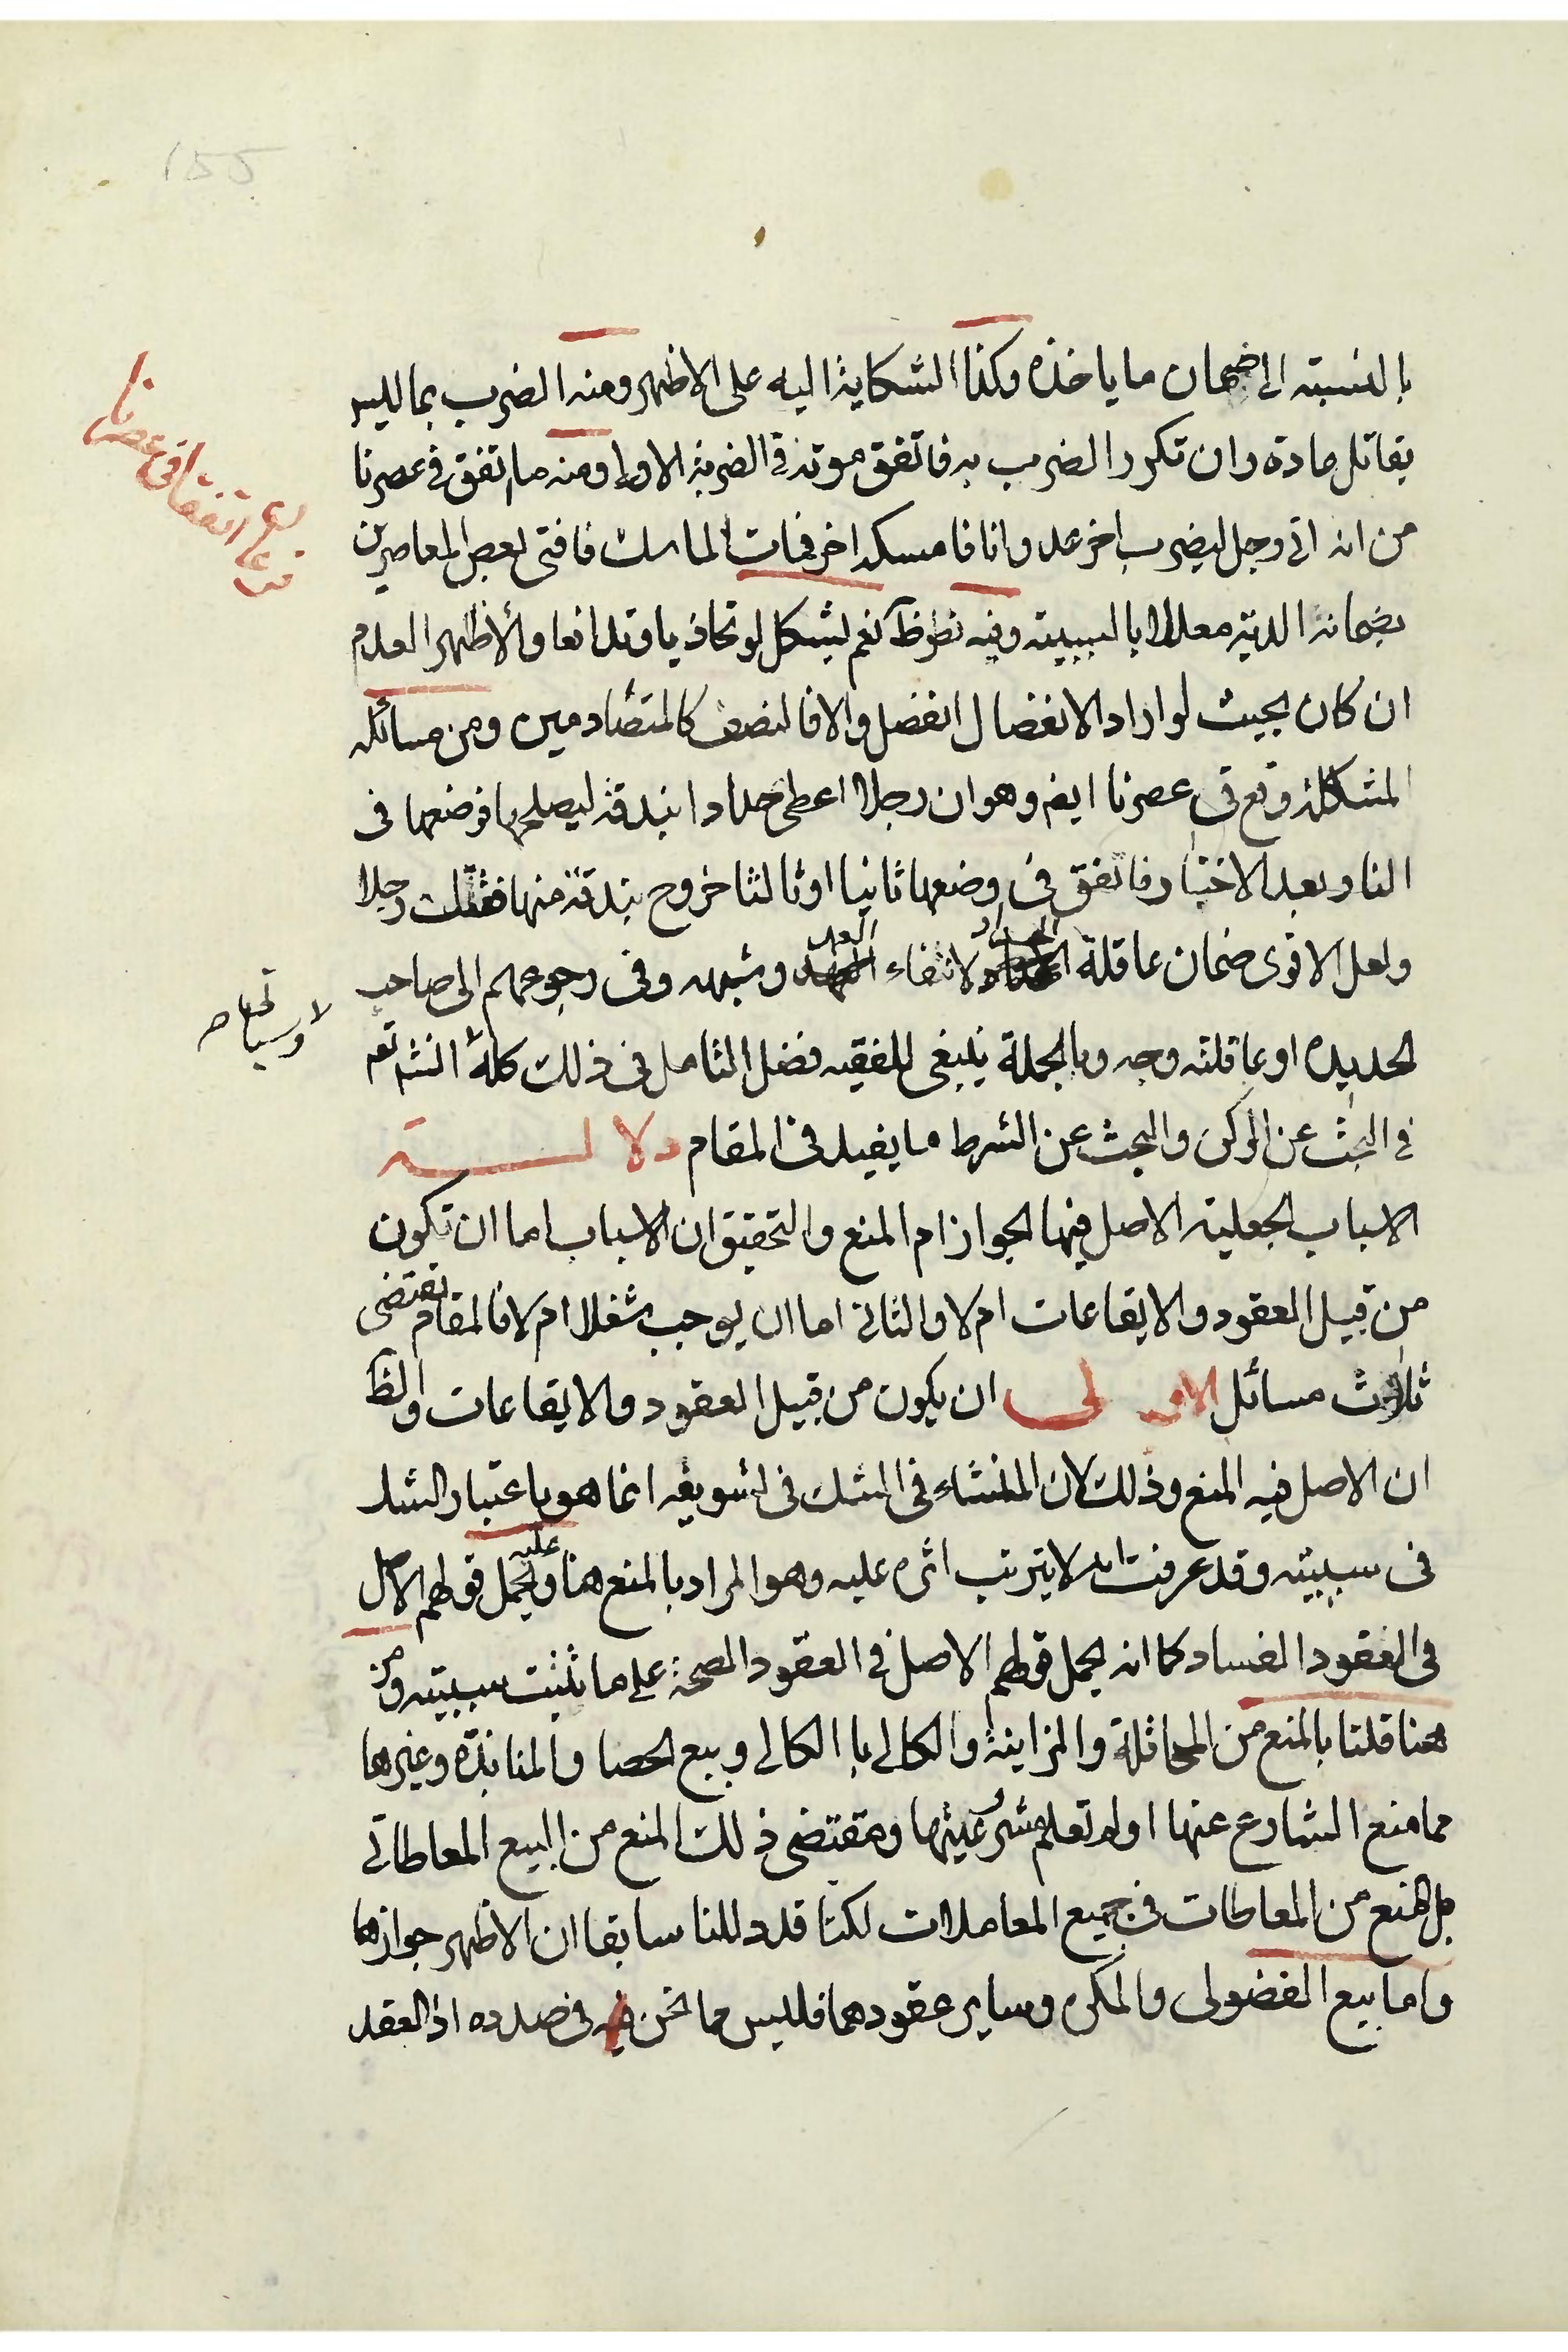 بالنسبته الى ضمان ما ياخذه وكذا الشكاية اليه على الاظهر ومنه الضرب بما ليس
بقاتل عادة وان تكرر الضرب به فاتفق موته فى الضربة الاولى ومنه ما اتفق فى عصرنا
من انه اتى رجل ليضرب اخر عدوانا فامسكه اخر فمات الماسك فافتى بعض المعاصرين
بضمانه الدية معللا بالسببيته وفيه نظر ظ نعم يشكل لو تجاذبا وتدافعا والأظهر العدم
ان كان بحيث لو اراد الانفصال انفصل والا فالنصف كالمتصادمين ومن مسائله
المشكلة وقع فى عصرنا ايضا وهو ان رجلا اعطى حدادا بندقة ليصلحها فوضعها فى
النار بعد الاختبار فاتفق فى وضعها ثانيا او ثالثا خروج بندقة منها فقتلت رجلا
ولعل الاقوى ضمان عاقلة الحداد لانتفاء العمد وشبهه وفى رجوعهم الى صاحب
الحديده او عاقلته وجه وبالجملة ينبغى للفقيه فضل التامل فى ذلك كله انشاء تعم
فى البحث عن الركن والبحث عن الشرط ما يفيد فى المقام دلالـــة
الاسباب الجعلية الاصل فيها الجواز ام المنع والتحقيق ان الاسباب اما ان تكون
من قبيل العقود والايقاعات ام لا والثانى اما ان يوجب شغلا ام لا فالمقام يقتضى
ثلاث مسائل الاولى ان يكون من قبيل العقود والايقاعات والظ
ان الاصل فيه المنع وذلك لان المنشاء فى الشك فى تسويغه انما هو باعتبار الشك
فى سببيته وقد عرفت انه لا يترتب اثره عليه وهو المراد بالمنع هنا وعليه يحمل قولهم الاصل
فى العقود الفساد كما انه يحمل قولهم الاصل فى العقود الصحة على ما ثبتت سببيته ومن
هنا قلنا بالمنع من المحاقلة والمزابنة والكالى بالكالى وبيع الحصا والمنابذة وغيرها
مما منع الشارع عنها او لم تعلم شرعيتها ومقتضى ذلك المنع من البيع المعاطاتى
بل المنع من المعاطات فى جميع المعاملات لكنا قد دللنا سابقا ان الاظهر جوازها
واما بيع الفضولى والمكره وساير عقودهما فليس مما نحن فى صدده اذ العقد
فرعان اتفقا فى عصرنا